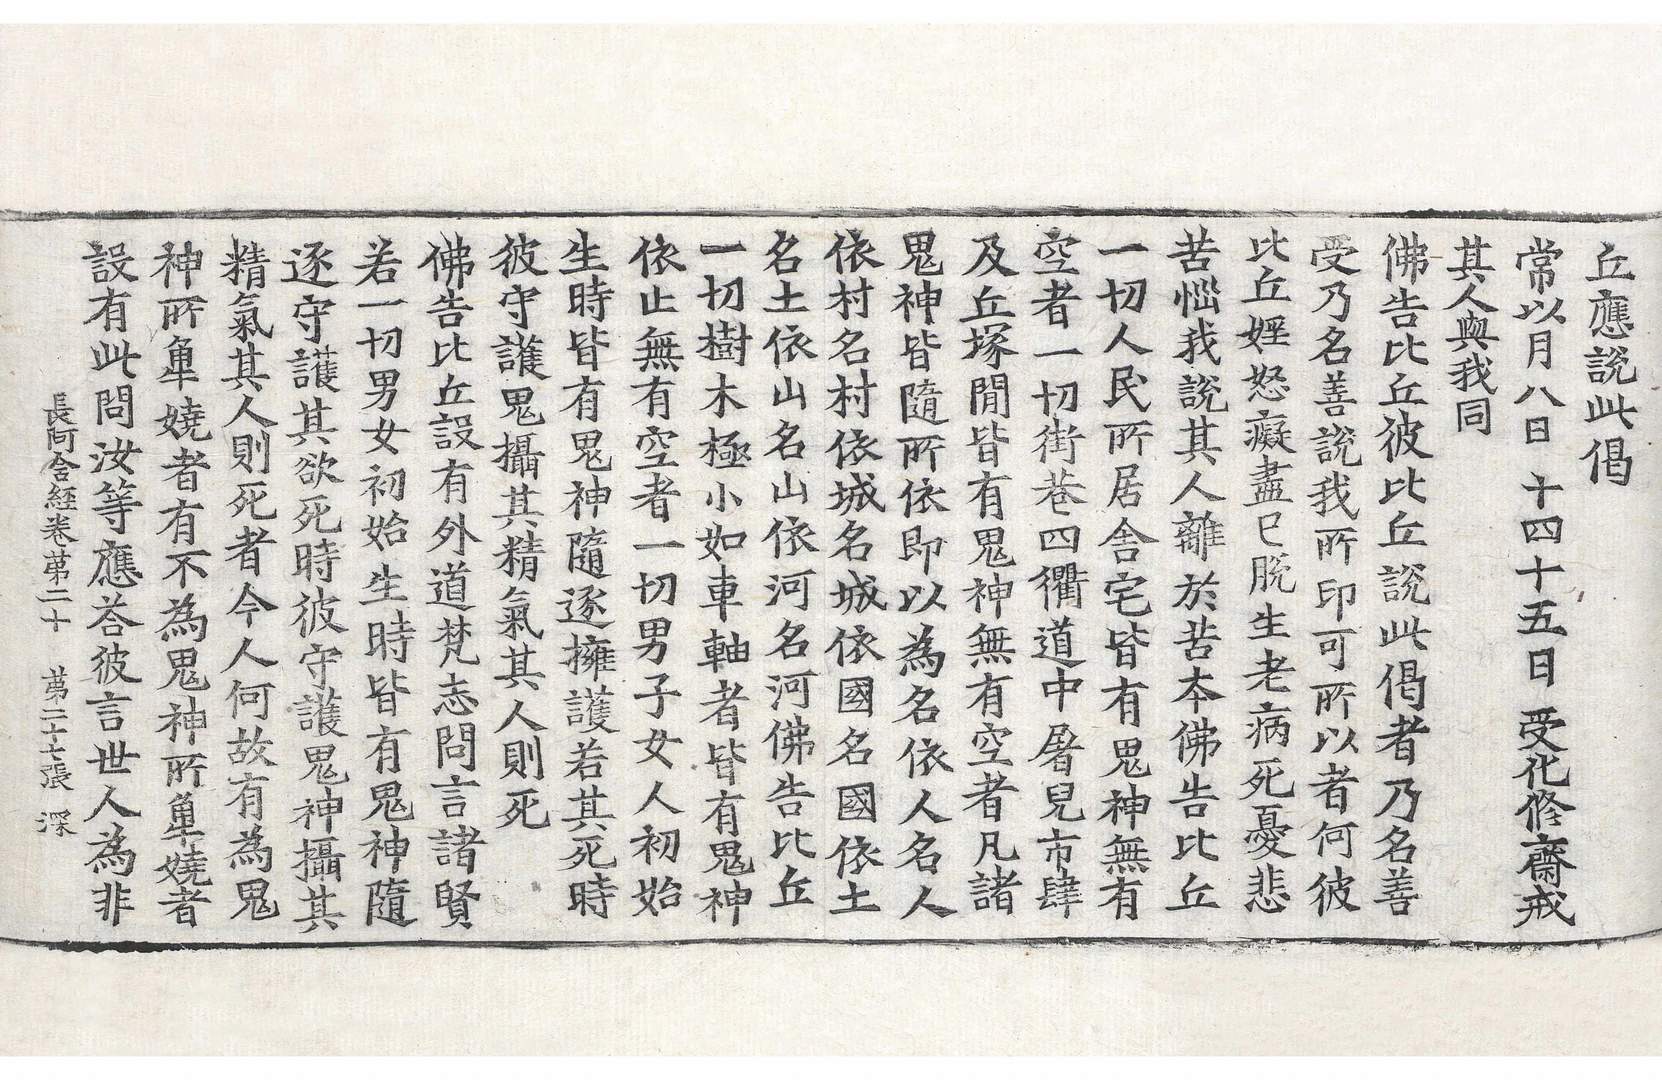 丘應說此偈
常以月八日 十四十五日 受化修齋戒
其人與我同
佛告比丘彼比丘說此偈者乃名善
受乃名善說我所印可所以者何彼
比丘婬怒癡盡已脫生老病死憂悲
苦惱我說其人離於苦本佛告比丘
一切人民所居舍宅皆有鬼神無有
空者一切街巷四衢道中屠兒市肆
及丘塚閒皆有鬼神無有空者凡諸
鬼神皆隨所依即以為名依人名人
依村名村依城名城依國名國依土
名土依山名山依河名河佛告比丘
一切樹木極小如車軸者皆有鬼神
依止無有空者一切男子女人初始
生時皆有鬼神隨逐擁護若其死時
彼守護鬼攝其精氣其人則死
佛告比丘設有外道梵志問言諸賢
若一切男女初始生時皆有鬼神隨
逐守護其欲死時彼守護鬼神攝其
精氣其人則死者今人何故有為鬼
神所𨋎嬈者有不為鬼神所𨋎嬈者
設有此問汝等應荅彼言世人為非
長阿含經卷第二十 第二十七張 深